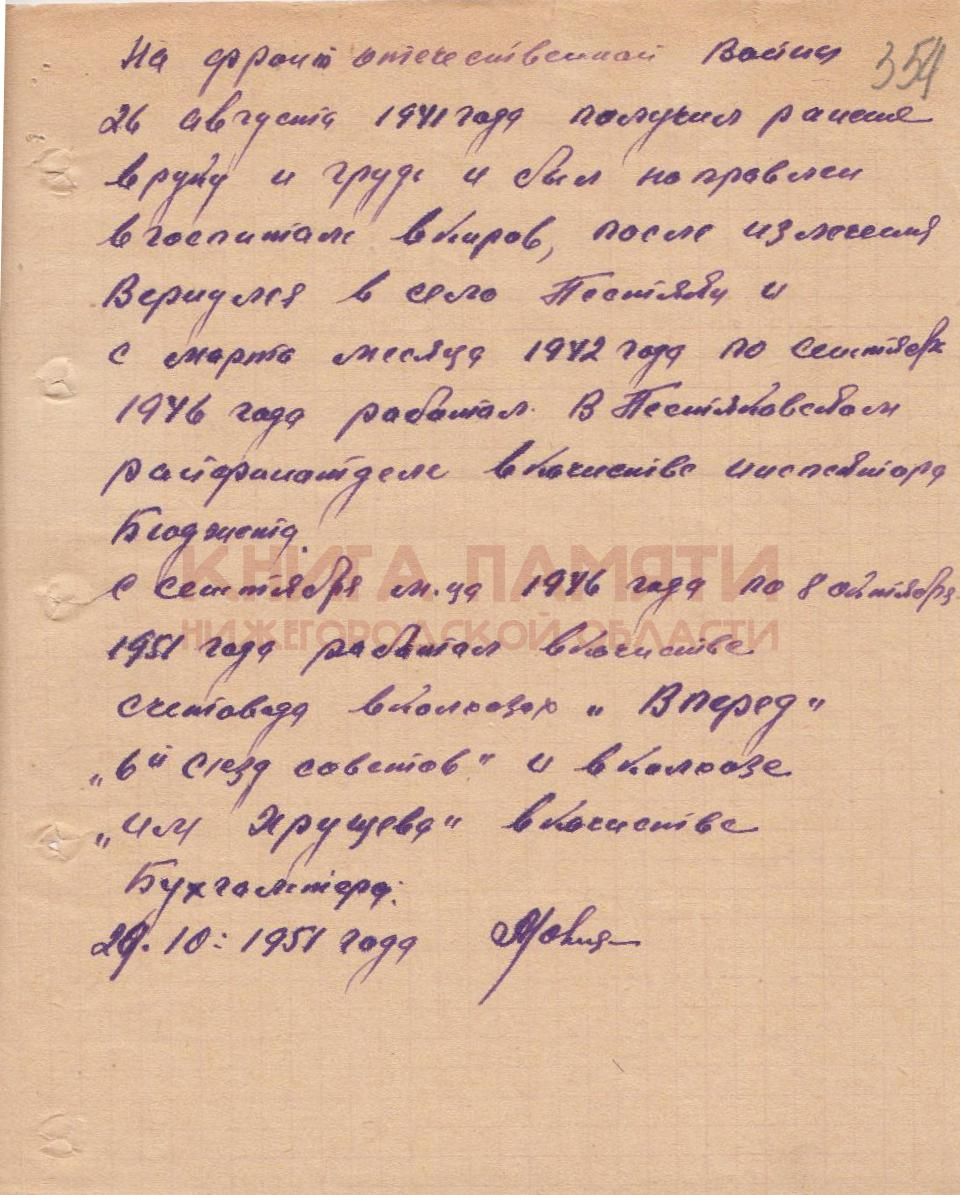 354
На фронт отечественной Войны
26 августа 1941 года получил рание
в руку и грудь и был направлен
в госпиталь в Киров, после излечения
Вернулся в село Пестяки и
с марта месяца 1942 года по сентябрь
1946 года работал. В Пестяковском
райфинотделе в качистве инспектора
Бюджета.
КНИГА ПАМЯТИ
с сентября м.ца 1946 года по 8 октября
НИЖЕГОРОДСКОЙ ОБЛАСТИ
1951 года работал в качистве
счетовода в колхозах „Вперед"
„6й съезд советов" и в колхозе
„им Хрущева" в качистве
Бухгалтера.
29. 10. 1951 года